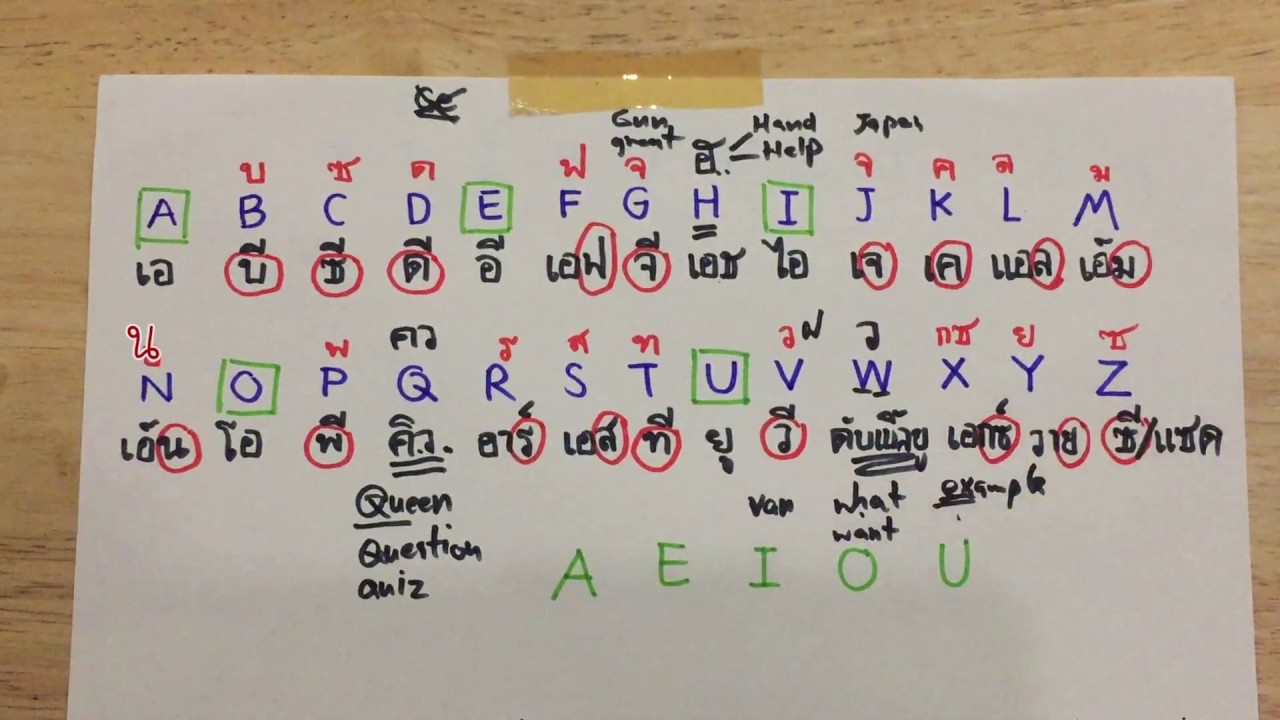 Gun Hand Japan
great ฮ Help
บ ซ ด ฟ จ จ ค ล ม
A B C D E F G H I J K L M
เอ บี ซี ดี อี เอฟ จี เอช ไอ เจ เค แอล เอ็ม
น พ คว ร ส ท ว ฝ ว กซ ย ซ
N O P Q R S T U V W X Y Z
เอ็น โอ พี คิว. อาร์ เอส ที ยู วี ดับเบิ้ลยู เอกซ์ วาย ซี/แซด
Queen van what example
Question want
quiz A E I O U